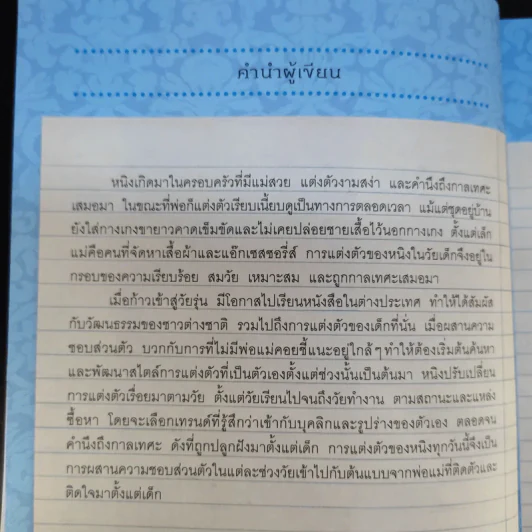 คำนำผู้เขียน
หนิงเกิดมาในครอบครัวที่มีแม่สวย แต่งตัวงามสง่า และคำนึงถึงกาลเทศะ
เสมอมา ในขณะที่พ่อก็แต่งตัวเรียบเนี้ยบดูเป็นทางการตลอดเวลา แม้แต่ชุดอยู่บ้าน
ยังใส่กางเกงขายาวคาดเข็มขัดและไม่เคยปล่อยชายเสื้อไว้นอกกางเกง ตั้งแต่เล็ก
แม่คือคนที่จัดหาเสื้อผ้าและแอ๊กเซสซอรี่ส์ การแต่งตัวของหนิงในวัยเด็กจึงอยู่ใน
กรอบของความเรียบร้อย สมวัย เหมาะสม และถูกกาลเทศะเสมอมา
เมื่อก้าวเข้าสู่วัยรุ่น มีโอกาสไปเรียนหนังสือในต่างประเทศ ทำให้ได้สัมผัส
กับวัฒนธรรมของชาวต่างชาติ รวมไปถึงการแต่งตัวของเด็กที่นั่น เมื่อผสานความ
ชอบส่วนตัว บวกกับการที่ไม่มีพ่อแม่คอยชี้แนะอยู่ใกล้ๆ ทำให้ต้องเริ่มต้นค้นหา
และพัฒนาสไตล์การแต่งตัวที่เป็นตัวเองตั้งแต่ช่วงนั้นเป็นต้นมา หนิงปรับเปลี่ยน
การแต่งตัวเรื่อยมาตามวัย ตั้งแต่วัยเรียนไปจนถึงวัยทำงาน ตามสถานะและแหล่ง
ซื้อหา โดยจะเลือกเทรนด์ที่รู้สึกว่าเข้ากับบุคลิกและรูปร่างของตัวเอง ตลอดจน
คำนึงถึงกาลเทศะ ดังที่ถูกปลูกฝังมาตั้งแต่เด็ก การแต่งตัวของหนิงทุกวันนี้จึงเป็น
การผสานความชอบส่วนตัวในแต่ละช่วงวัยเข้าไปกับต้นแบบจากพ่อแม่ที่ติดตัวและ
ติดใจมาตั้งแต่เด็ก